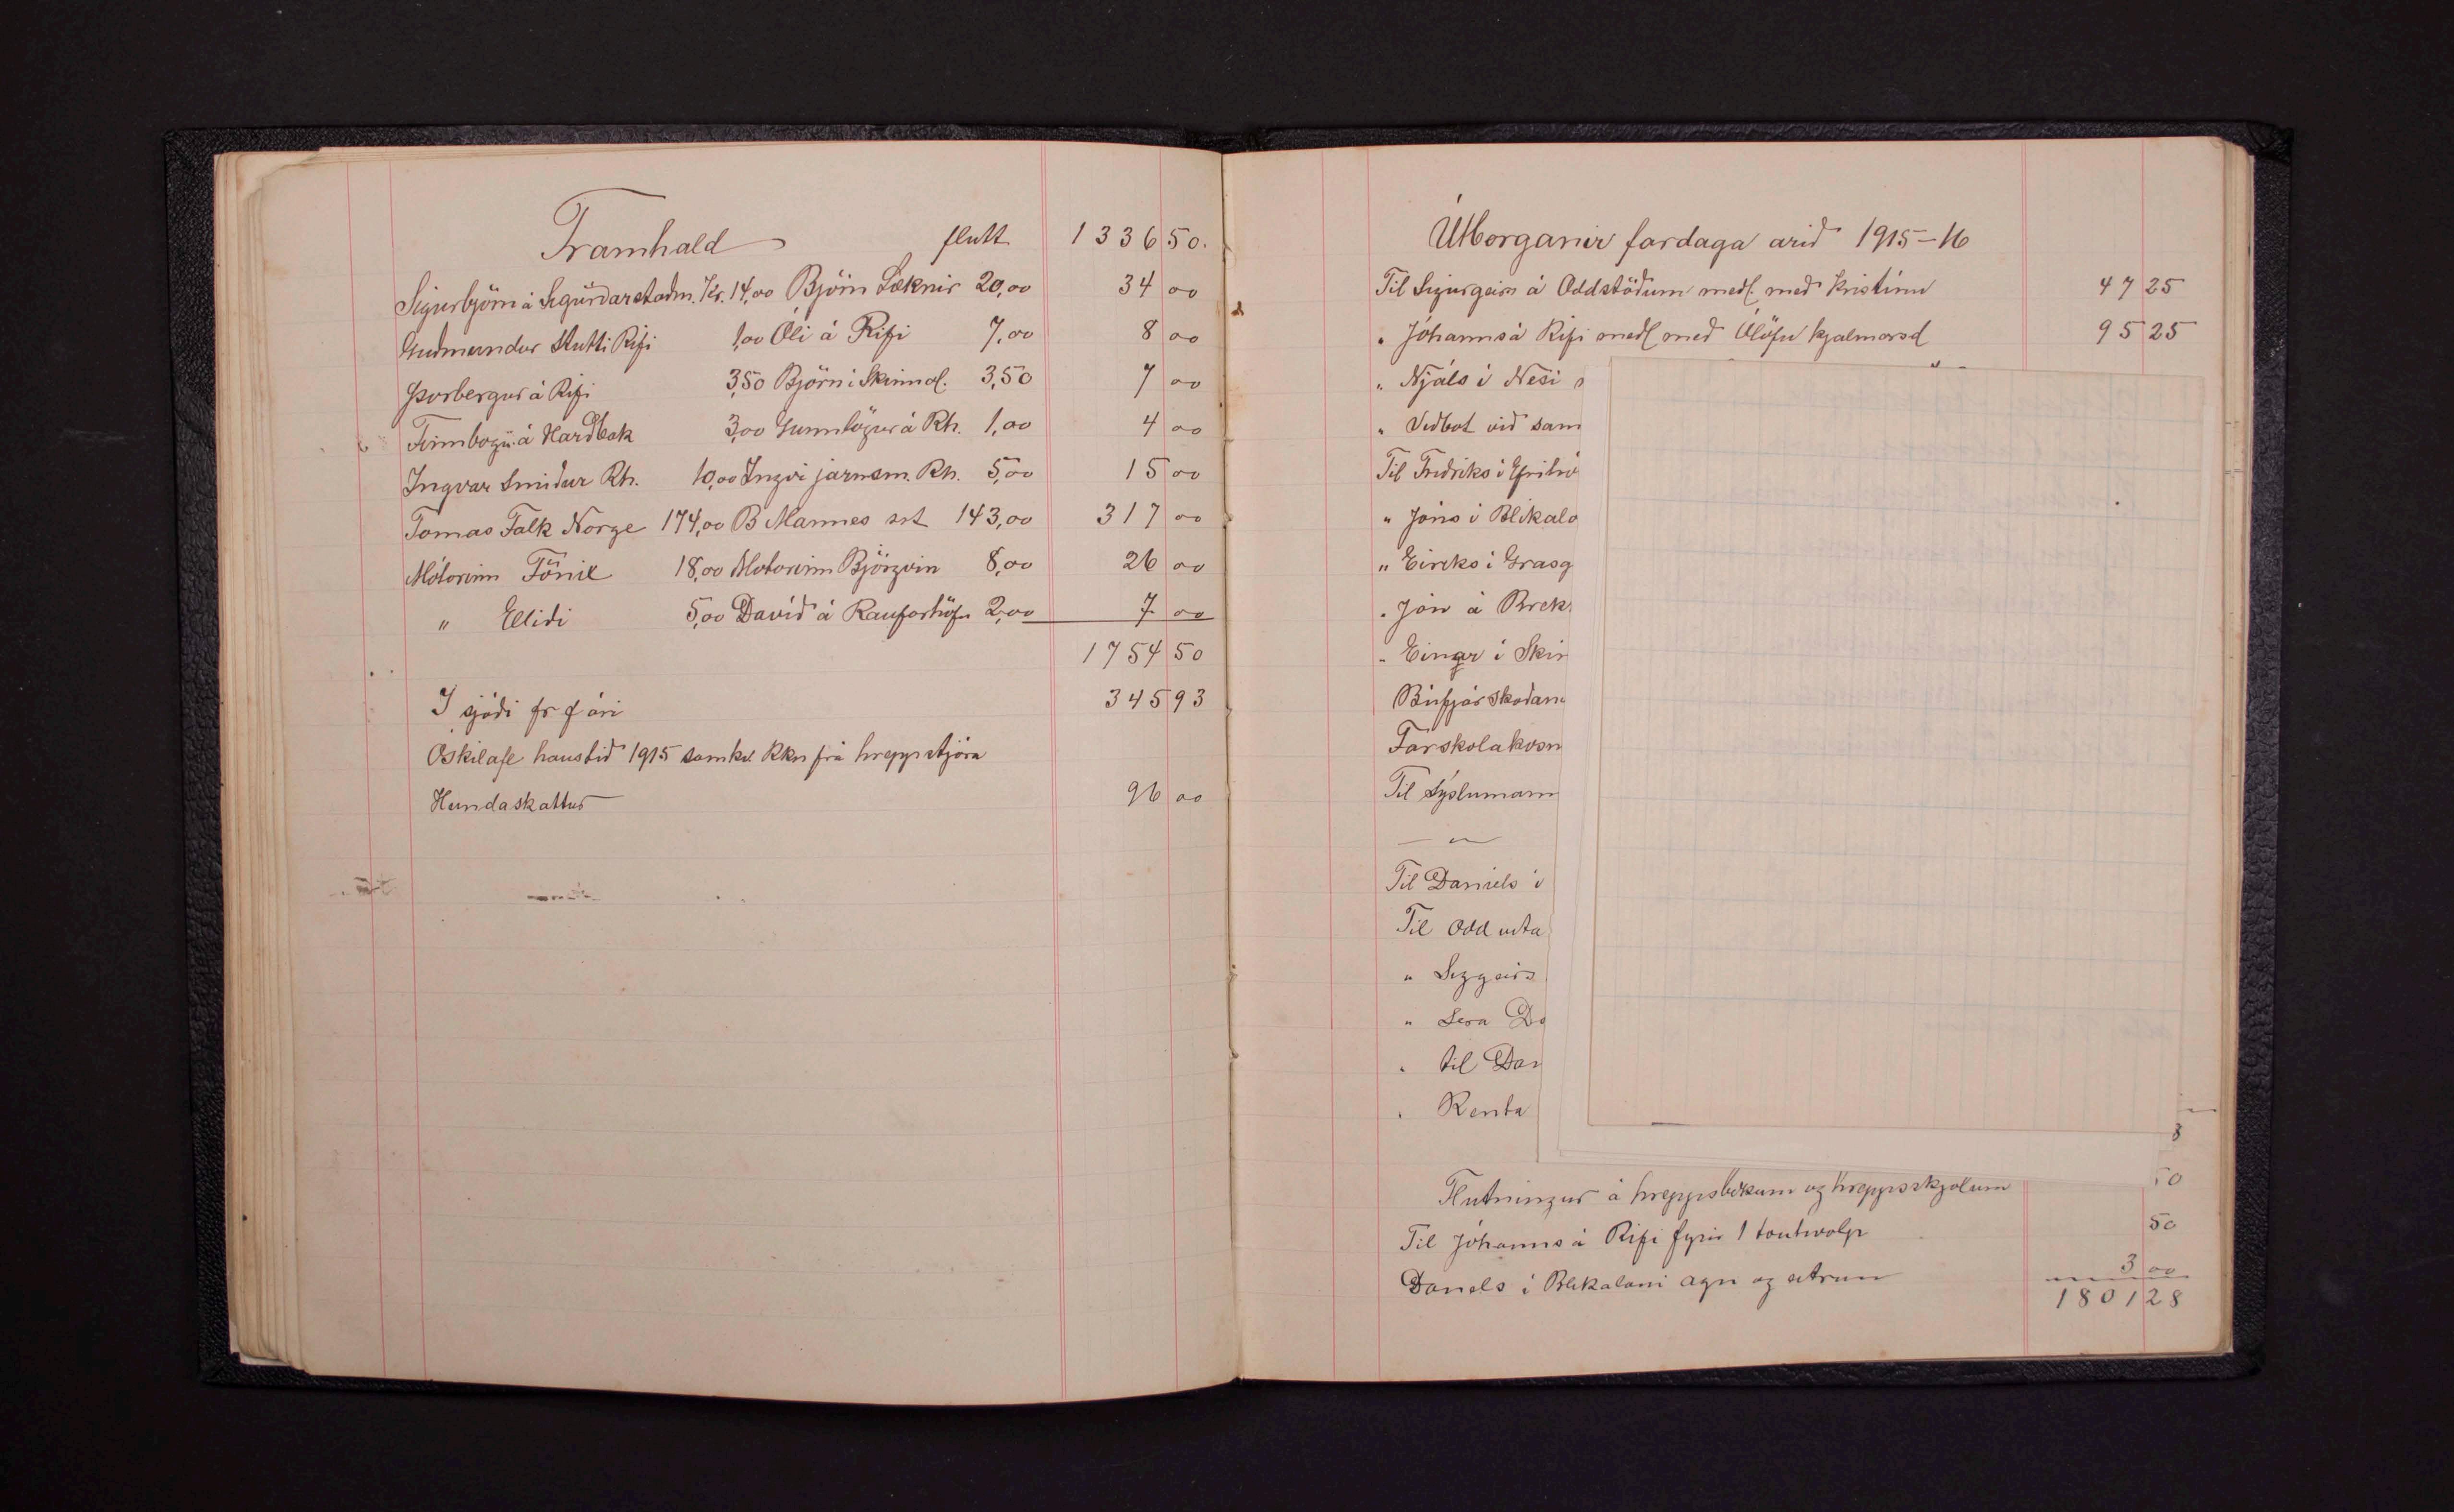 Framhald flutt 1336 50.
Sigurbjörn á Sigurdarstadm. Kr. 14,00 Björn Læknir 20,00 34 00
Gudmundur Stutti Rifi 1,00 Óli á Rifi 7,00 8 00
Þorbergur á Rifi 3,50 Björn i Skinnal. 3,50 7 00
Finnbogi á Hardbak 3,00 Gunnlögur á Rh. 1,00 4 00
Ingvar Smidur Rh. 10,00 Ingvi jarnsm. Rh. 5,00 15 00
Tomas Falk Norge 174,00 B Mannes 143,00 317 00
Mótorinn Fönix 18,00 Motorinn Björgvin 8,00 26 00
" Ellidi 5,00 Davíd á Raufarhöfn 2,00 7 00
1754 50
I sjódi fr f ári 345 93
Oskilafe haustid 1915 samkv Rkn frá hreppstjóra
Hundaskattur 96 00
Útborganir fardaga arid 1915–16
Til Sigurgeirs á Oddstödum medl. med Kristínu 47 25
" Jóhanns á Rifi medl med Ólöfu hjalmarsd 95 25
" Njáls i Nesi
" Vedbot vid sam
Til Fridriks i Efrihó
" Jóns i Blikalo
" Eiríks i Grasg
" Jón á Brek
" Einar i Skin
Búfjárskodan
Farskolakosn
Til Sýslumann
— " —
Til Daniels i
Til Odd
" Siggeirs
" Sera Da
" til Dan
" Renta
8
Flutningur á hreppsbókum og hreppsskjolum 50
Til Jóhanns á Rifi fyrir 1 50
Daníels i Blikaloni agn og 3 00
1801 28